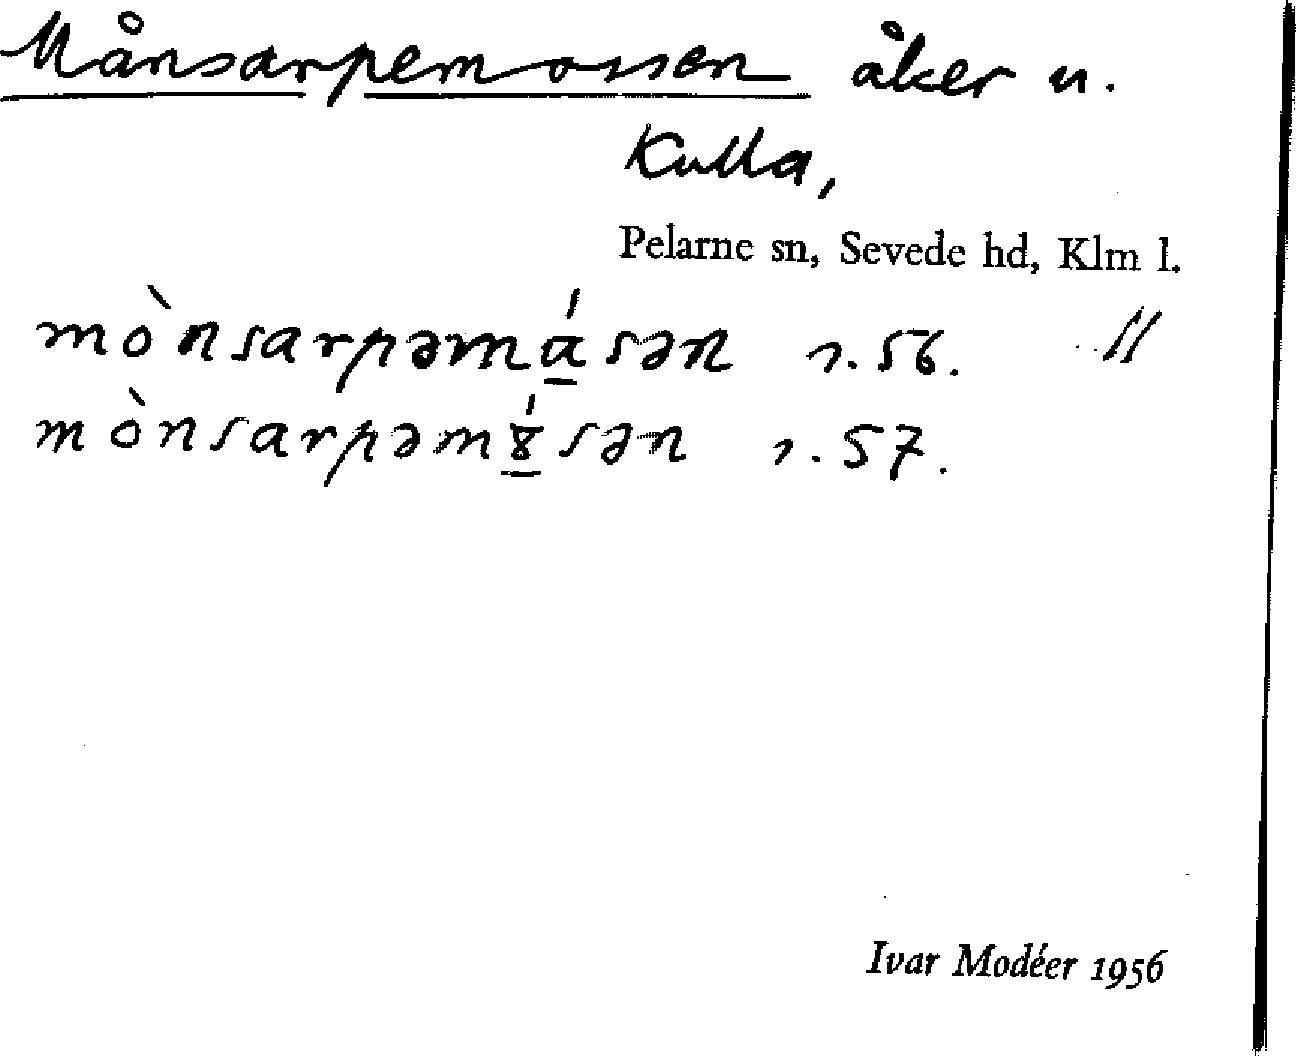 Månsarpemossen åker u.
Kulla,
Pelarne sn, Sevede hd, Klm l.
mònsarpəmásən s. 56. //
mònsarpəmɤ́sən s. 57.
Ivar Modéer 1956